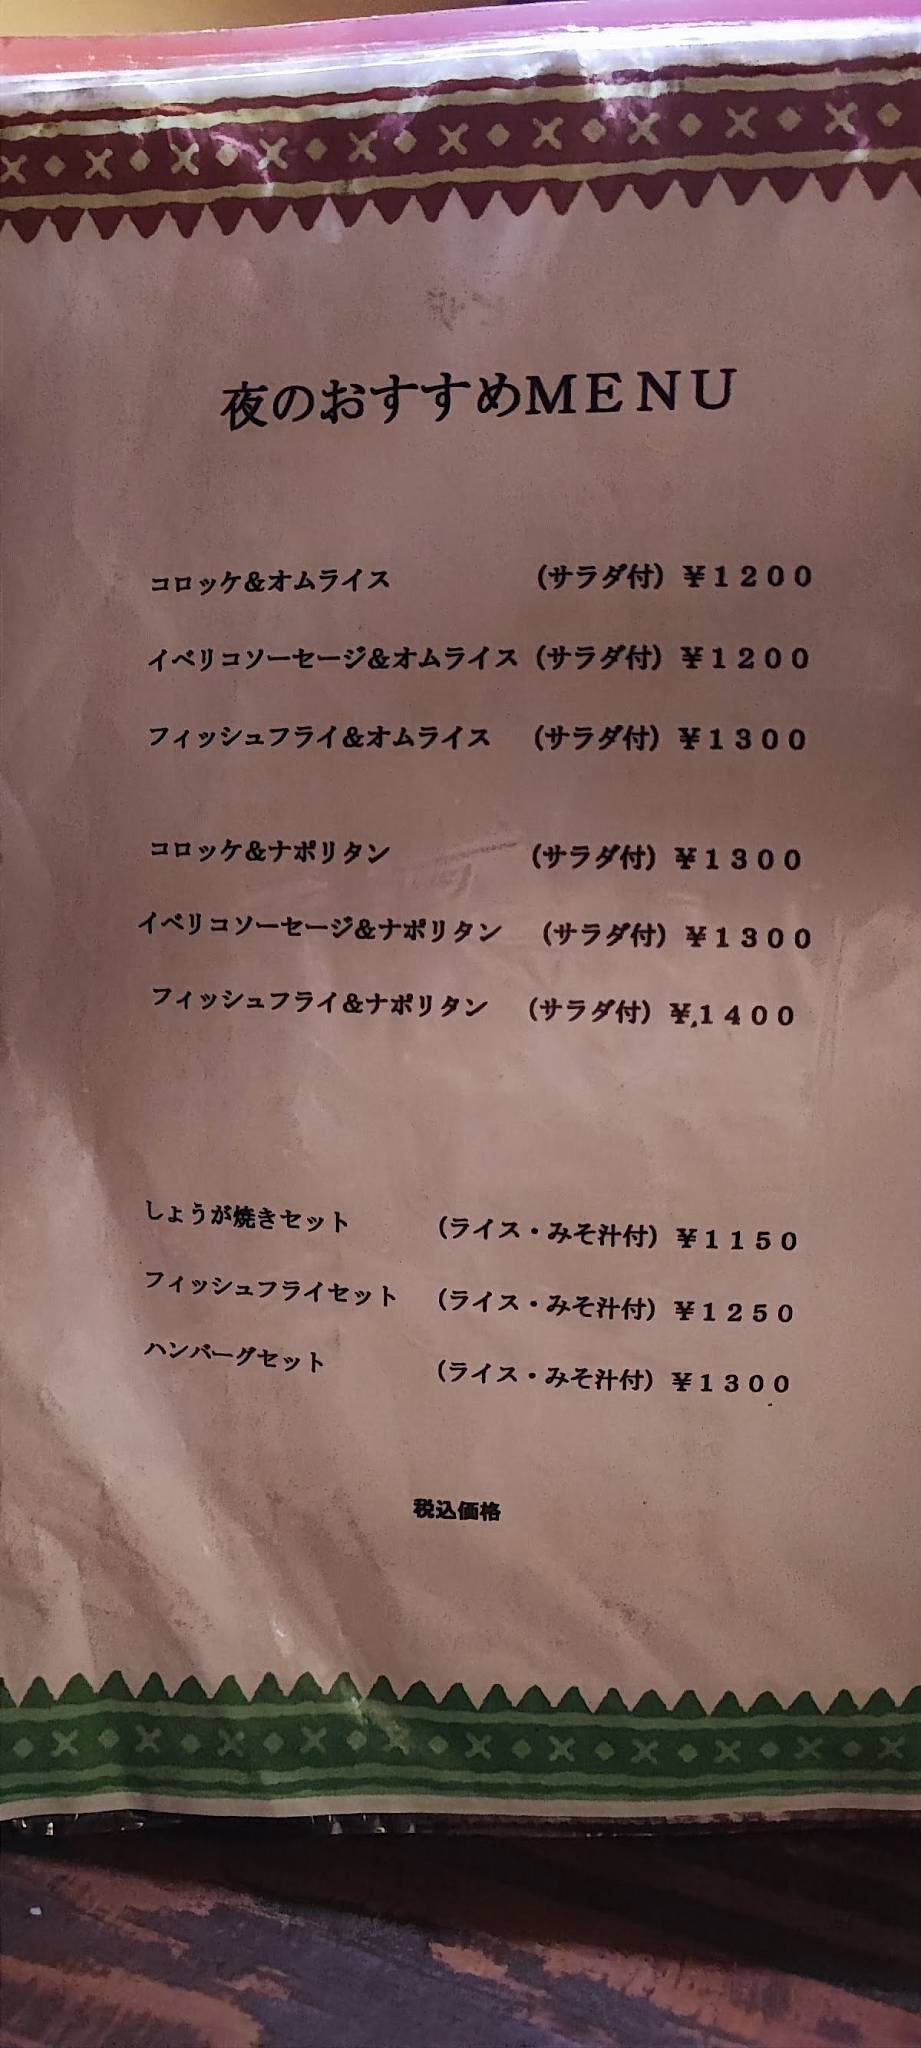 夜のおすすめMENU
コロッケ&オムライス (サラダ付) ¥1200
イベリコソーセージ&オムライス (サラダ付) ¥1200
フィッシュフライ&オムライス (サラダ付) ¥1300
コロッケ&ナポリタン (サラダ付) ¥1300
イベリコソーセージ&ナポリタン (サラダ付) ¥1300
フィッシュフライ&ナポリタン (サラダ付) ¥1400
しょうが焼きセット (ライス・みそ汁付) ¥1150
フィッシュフライセット (ライス・みそ汁付) ¥1250
ハンバーグセット (ライス・みそ汁付) ¥1300
税込価格